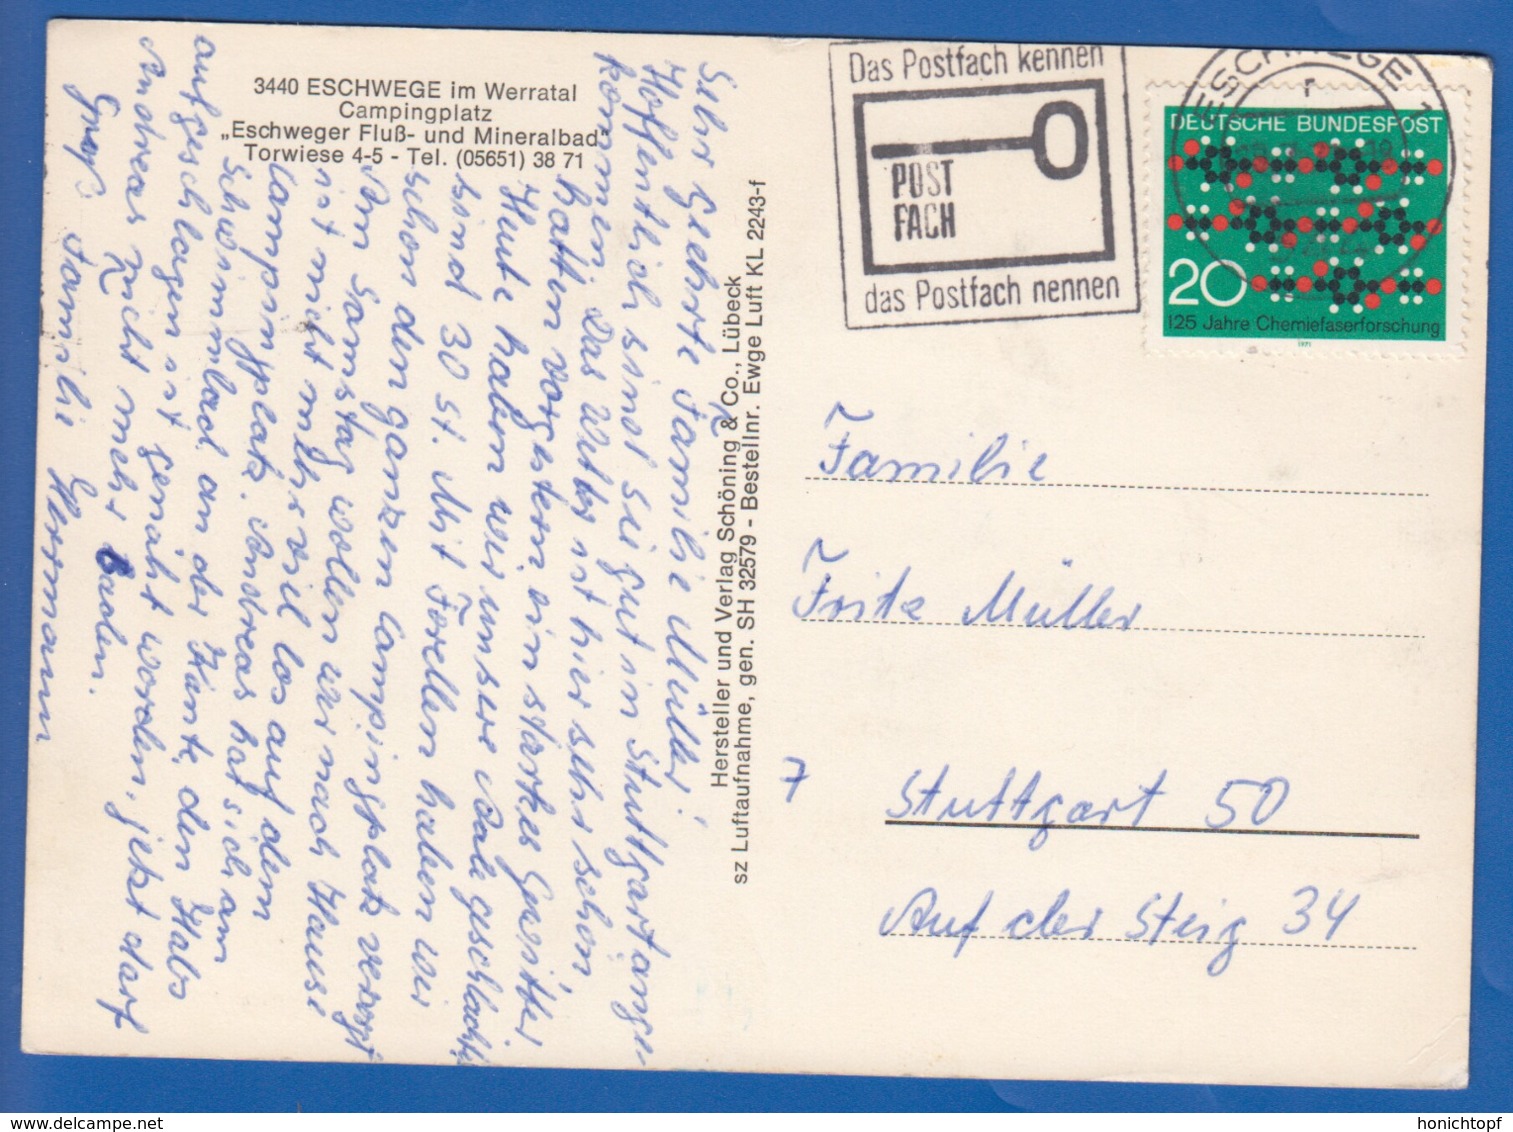 3440 ESCHWEGE im Werratal
Campingplatz
„Eschweger Fluß- und Mineralbad"
Torwiese 4-5 - Tel. (05651) 38 71
Sehr geehrte Familie Müller!
Hoffentlich sind Sie gut in Stuttgart ange-
kommen. Das Wetter ist hier sehr schön
hatten vorgestern ein starkes Gewitter
Heute haben wir unsere Aale geschlachtet
sind 30 St. Mit Forellen haben wir
schon den ganzen Campingplatz versorgt
Am Samstag wollen wir nach Hause
ist nicht mehr viel los auf dem
Campingplatz. Andreas hat sich am
Schwimmbad an der Kante den Hals
aufgeschlagen ist genäht worden, jetzt darf
Andreas nicht mehr baden.
Gruß Familie Hermann
Hersteller und Verlag Schöning & Co., Lübeck
sz Luftaufnahme, gen. SH 32579 - Bestellnr. Ewge Luft KL 2243-f
Das Postfach kennen
POST
FACH
das Postfach nennen
ESCHWEGE 1
DEUTSCHE BUNDESPOST
20
125 Jahre Chemiefaserforschung
1971
Familie
Fritz Müller
7 Stuttgart 50
Auf der Steig 34
honichtopf
www.delcampe.net